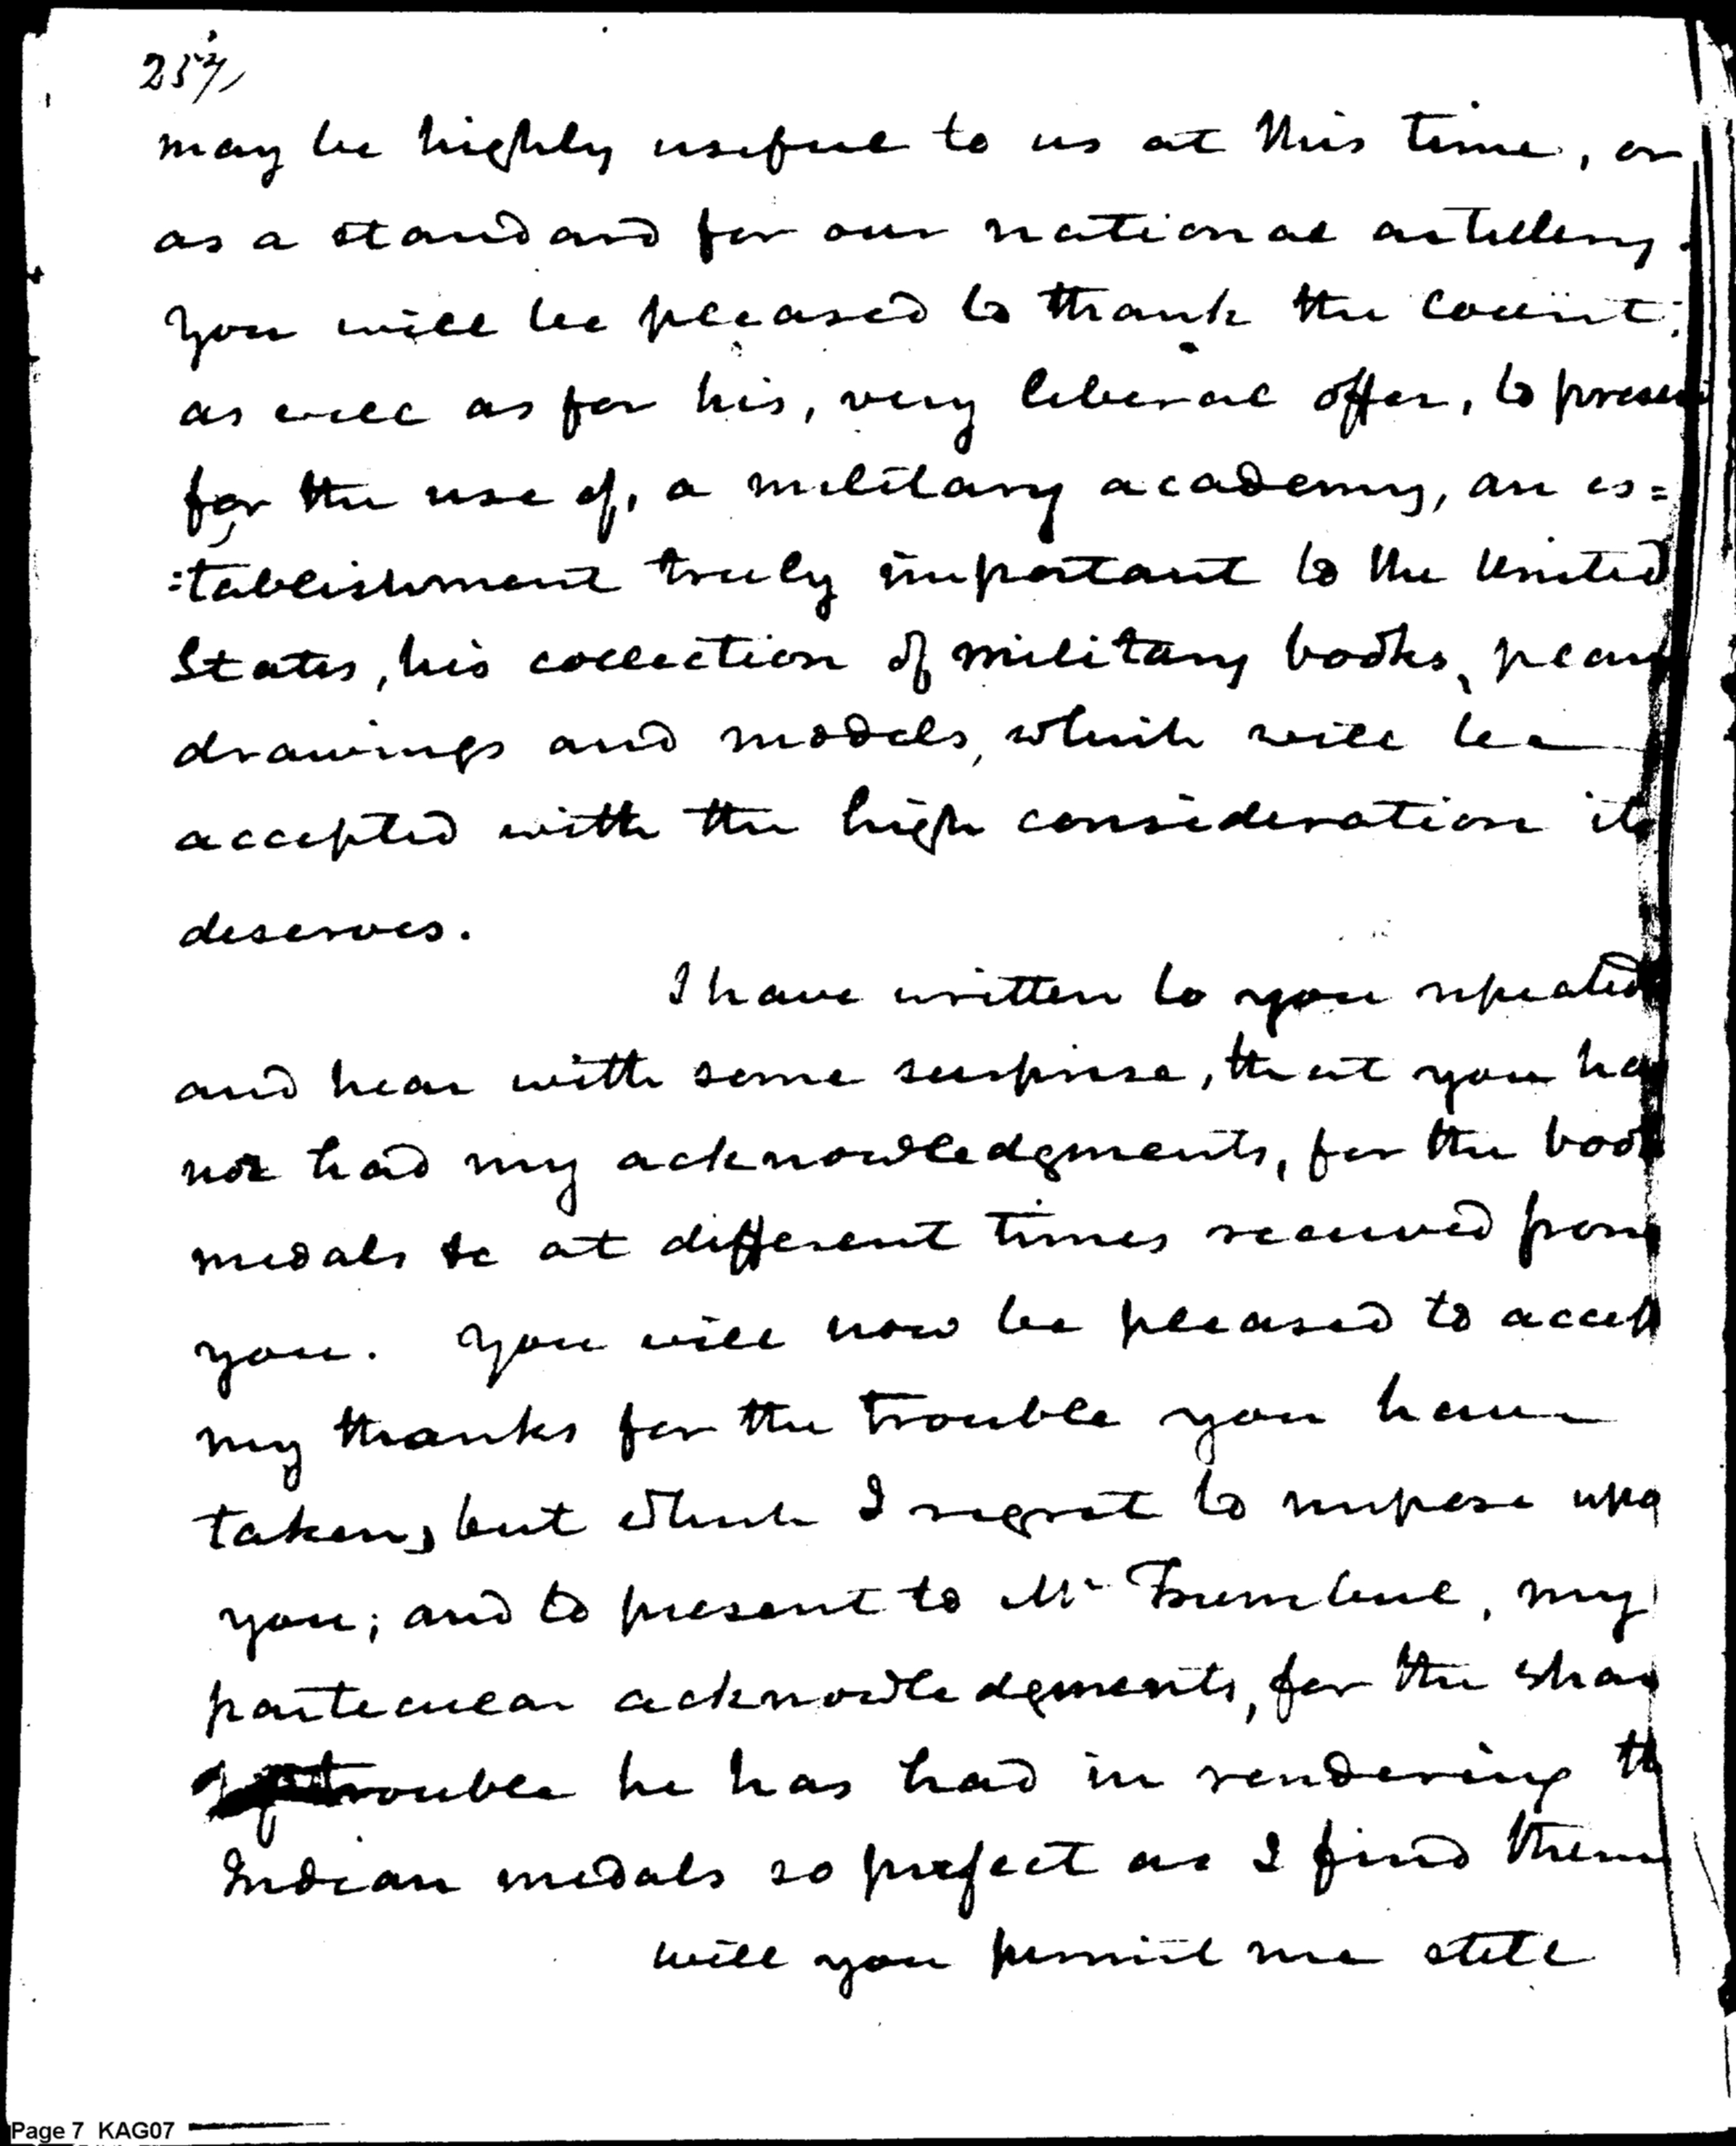 257
may be highly useful to us at this time, or
as a standard for our national artillery.
You will be pleased to thank the Count;
as well as for his, very liberal offer, to present
for the use of, a military academy, an es=
=tablishment truly important to the United
States, his collection of military books, plans
drawings and models, which will be
accepted with the high consideration it
deserves.
I have written to you repeated
and hear with some surprise, that you ha
not had my acknowledgments, for the book
medals &c at different times received from
you. You will now be pleased to accept
my thanks for the trouble you have
taken, but which I regret to impose upo
you; and to present to Mr Trumbull, my
particular acknowledgments, for the shar
of trouble he has had in rendering th
Indian medals so prefect as I find them
Will you permit me still
Page 7 KAG07